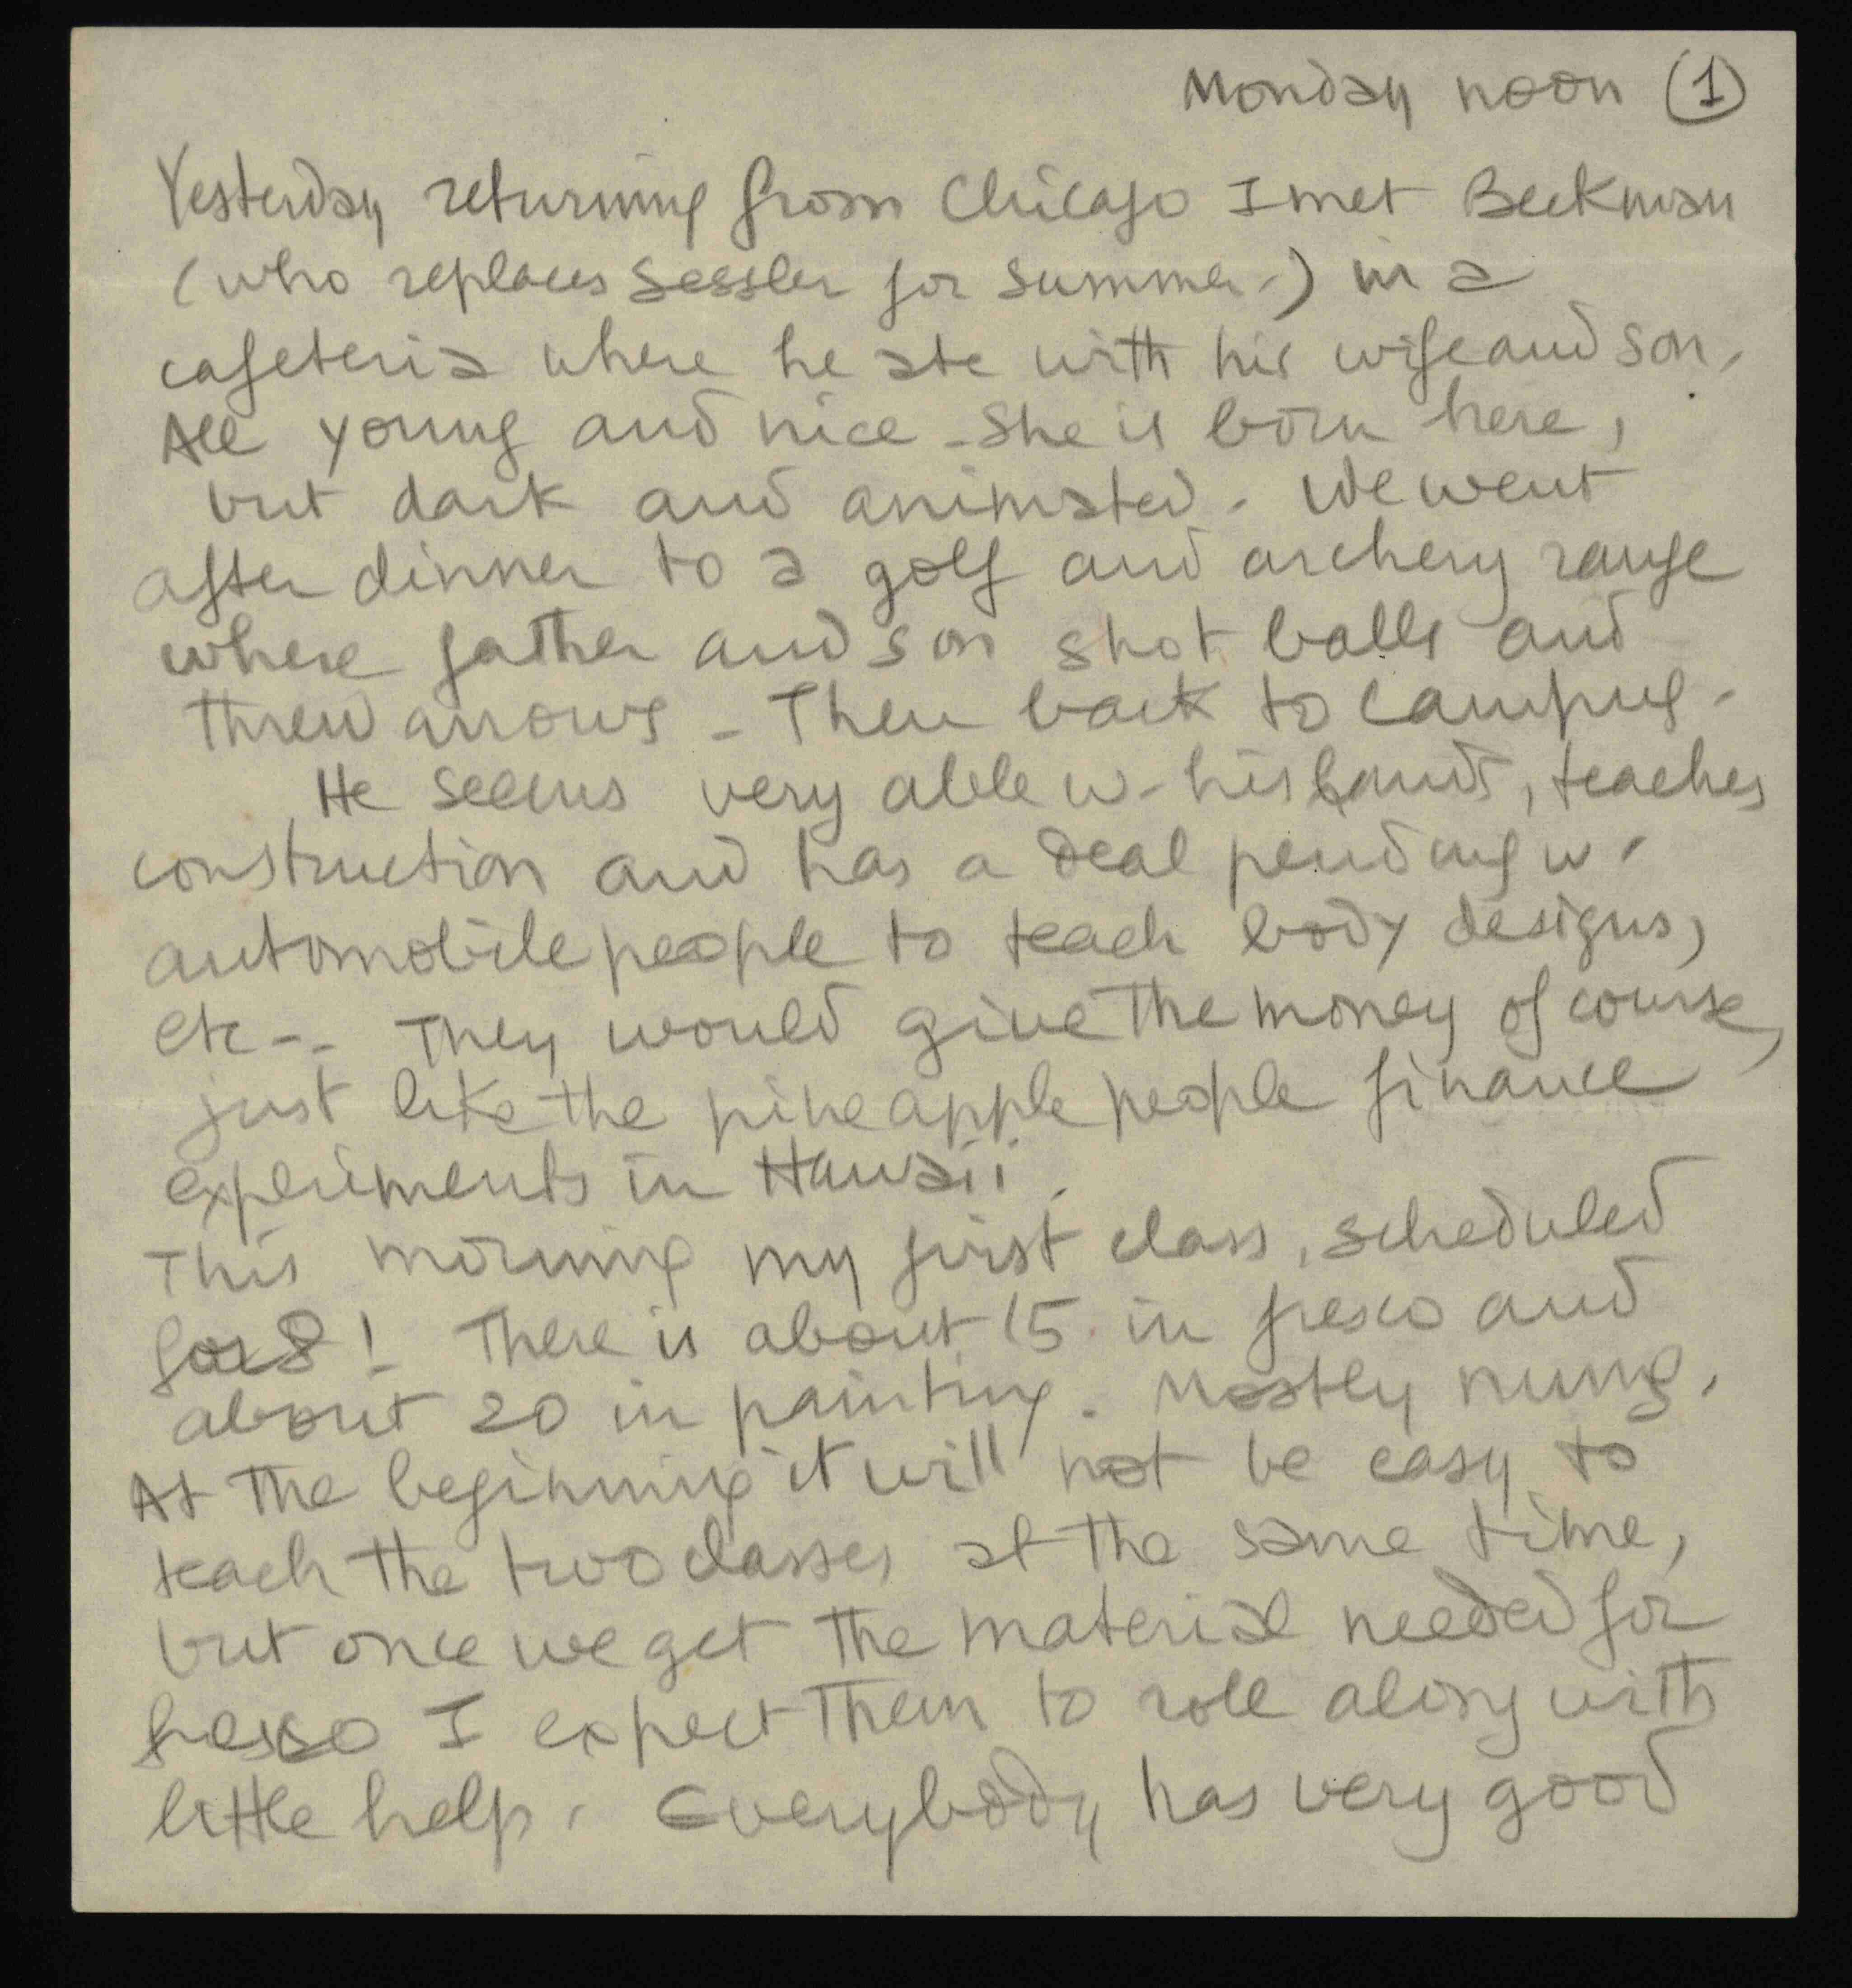 Monday noon (1)
Yesterday returning from Chicago I met Beckman
(who replaces Sessler for summer.) in a
cafeteria where he ate with his wife and son.
All young and nice - She is born here,
but dark and animated. We went
after dinner to a golf and archery range
where father and son shot balls and
threw arrows - Then back to campus.
He seems very able w. his hands, teaches
construction and has a deal pending w.
automobile people to teach body designs,
etc -. They would give the money of course,
just like the pineapple people finance
experiments in Hawaii.
This morning my first class, scheduled
for 8! There is about 15 in fresco and
about 20 in painting. Mostly nuns.
At the beginning it will not be easy to
teach the two classes at the same time,
but once we get the material needed for
fresco I expect them to roll along with
little help. Everybody has very good